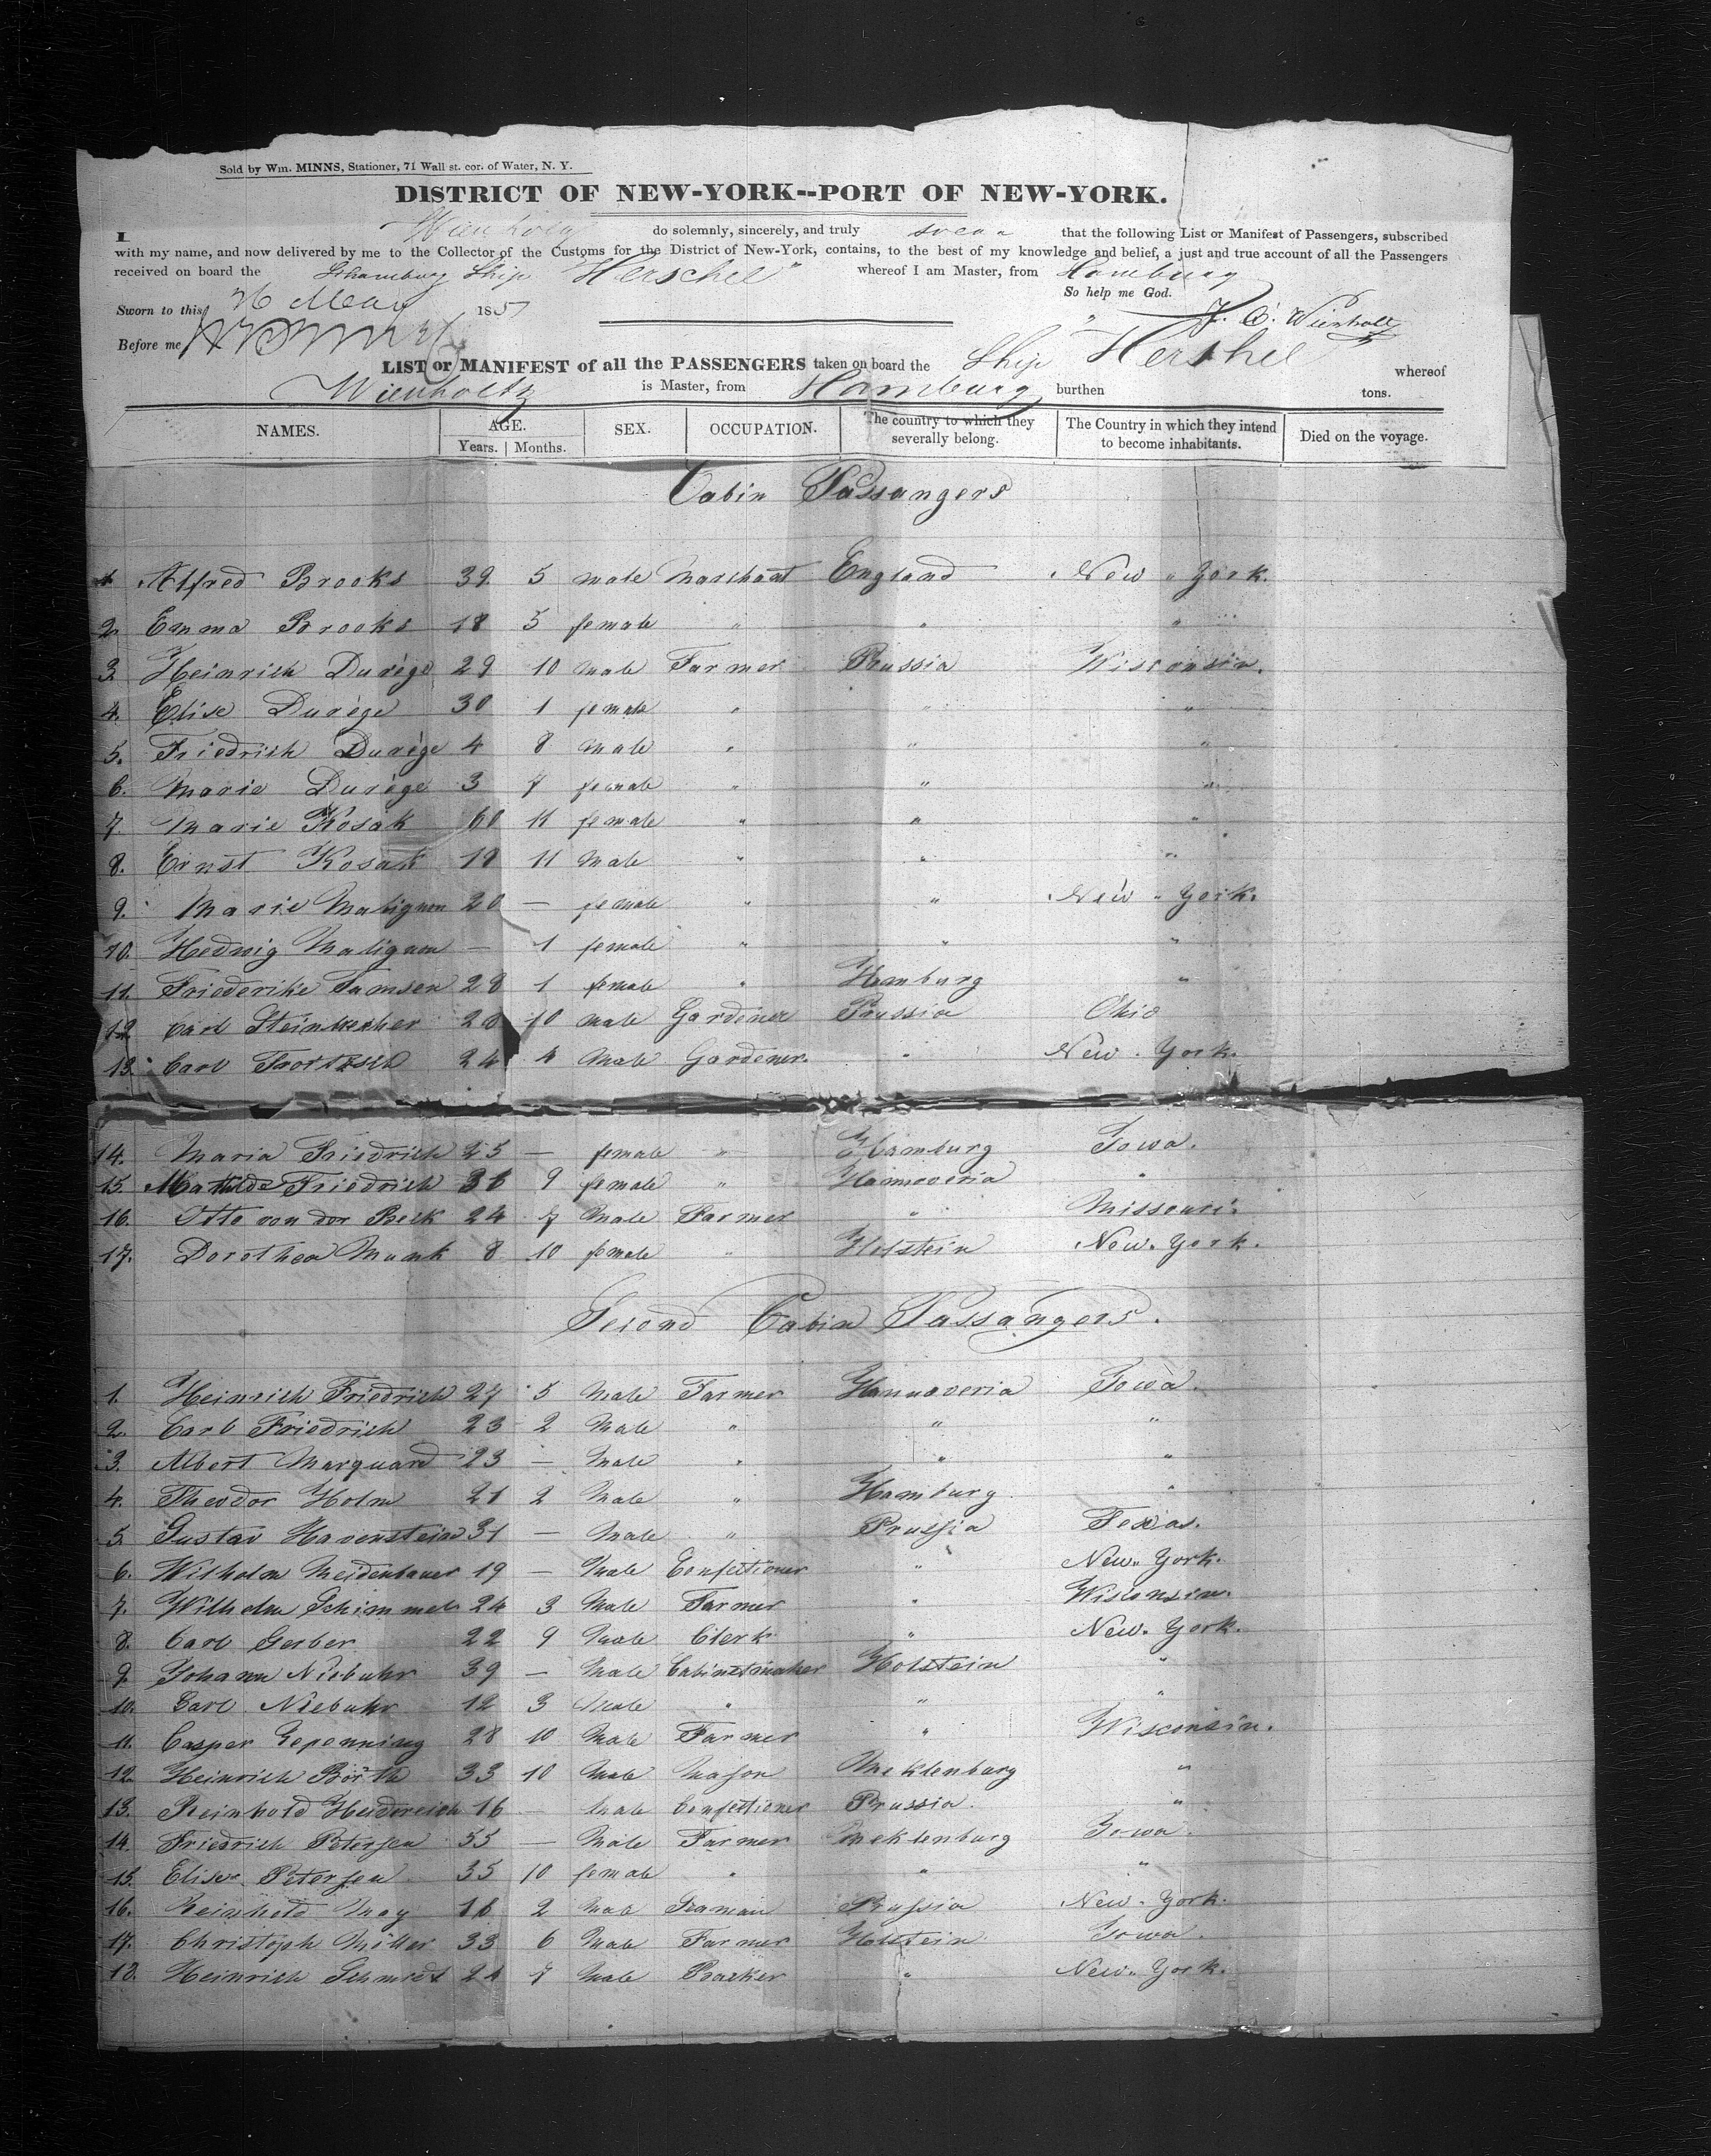 Sold by Wm. MINNS, Stationer, 71 Wall st. cor. of Water, N. Y.
DISTRICT OF NEW-YORK--PORT OF NEW-YORK.
I Wienholtz do solemnly, sincerely, and truly swear that the following List or Manifest of Passengers, subscribed
with my name, and now delivered by me to the Collector of the Customs for the District of New-York, contains, to the best of my knowledge and belief, a just and true account of all the Passengers
received on board the Hamburg Ship "Herschel" whereof I am Master, from Hamburg
So help me God.
Sworn to this 26 May 1857
J. C. Wienholtz
Before me
LIST or MANIFEST of all the PASSENGERS taken on board the Ship Hershel whereof
Wienholtz is Master, from Hamburg burthen tons.
NAMES. AGE. Years. Months. SEX. OCCUPATION. The country to which they severally belong. The Country in which they intend to become inhabitants. Died on the voyage.
Cabin Passangers
1. Alfred Brooks 39 5 male Marchant England New York.
2. Emma Brooks 18 5 female " " "
3. Heinrich Durège 29 10 male Farmer Prussia Wisconsin.
4. Elise Durège 30 1 female " " "
5. Friedrich Durège 4 8 male " " "
6. Marie Durège 3 7 female " " "
7. Marie Kosak 60 11 female " " "
8. Ernst Kosak 18 11 male " " "
9. Marie Malignon 20 — female " " New York.
10. Hedwig Malignon — 1 female " " "
11. Friederike Tamsen 28 1 female " Hamburg "
12. Carl 10 male Gardener Prussia Ohio
13. Carl 24 4 male Gardener " New York.
14. Maria Friedrich 25 — female " Hamburg Iowa.
15. Mathilde Friedrich 36 9 female " Hannoveria "
16. Otto von der Beck 24 7 male Farmer " Missouri.
17. Dorothea Munk 8 10 female " Holstein New York.
Second Cabin Passangers.
1. Heinrich Friedrich 27 5 male Farmer Hannoveria Iowa.
2. Carl Friedrich 23 2 male " " "
3. Albert Marquard 23 — male " " "
4. Theodor Holm 21 2 male " Hamburg "
5. Gustav Havenstein 31 — male " Prussia Texas.
6. Wilhelm Meidenbauer 19 — male Confectioner " New York.
7. Wilhelm Schimmel 24 3 male Farmer " Wisconsin.
8. Carl Gerber 22 9 male Clerk " New York.
9. Johann Niebuhr 39 — male Cabinetmaker Holstein "
10. Carl Niebuhr 12 3 male " " "
11. Casper Gepenning 28 10 male Farmer " Wisconsin.
12. Heinrich 33 10 male Mason Meklenburg "
13. Reinhold Heidereich 16 — male Confectioner Prussia. "
14. Friedrich Petersen 55 — male Farmer Meklenburg Iowa.
15. Elise Petersen 35 10 female " " "
16. Reinhold May 18 2 male Seaman Prussia New York.
17. Christoph Möller 33 6 male Farmer Holstein Iowa.
18. Heinrich Schmidt 24 7 male Backer " New York.